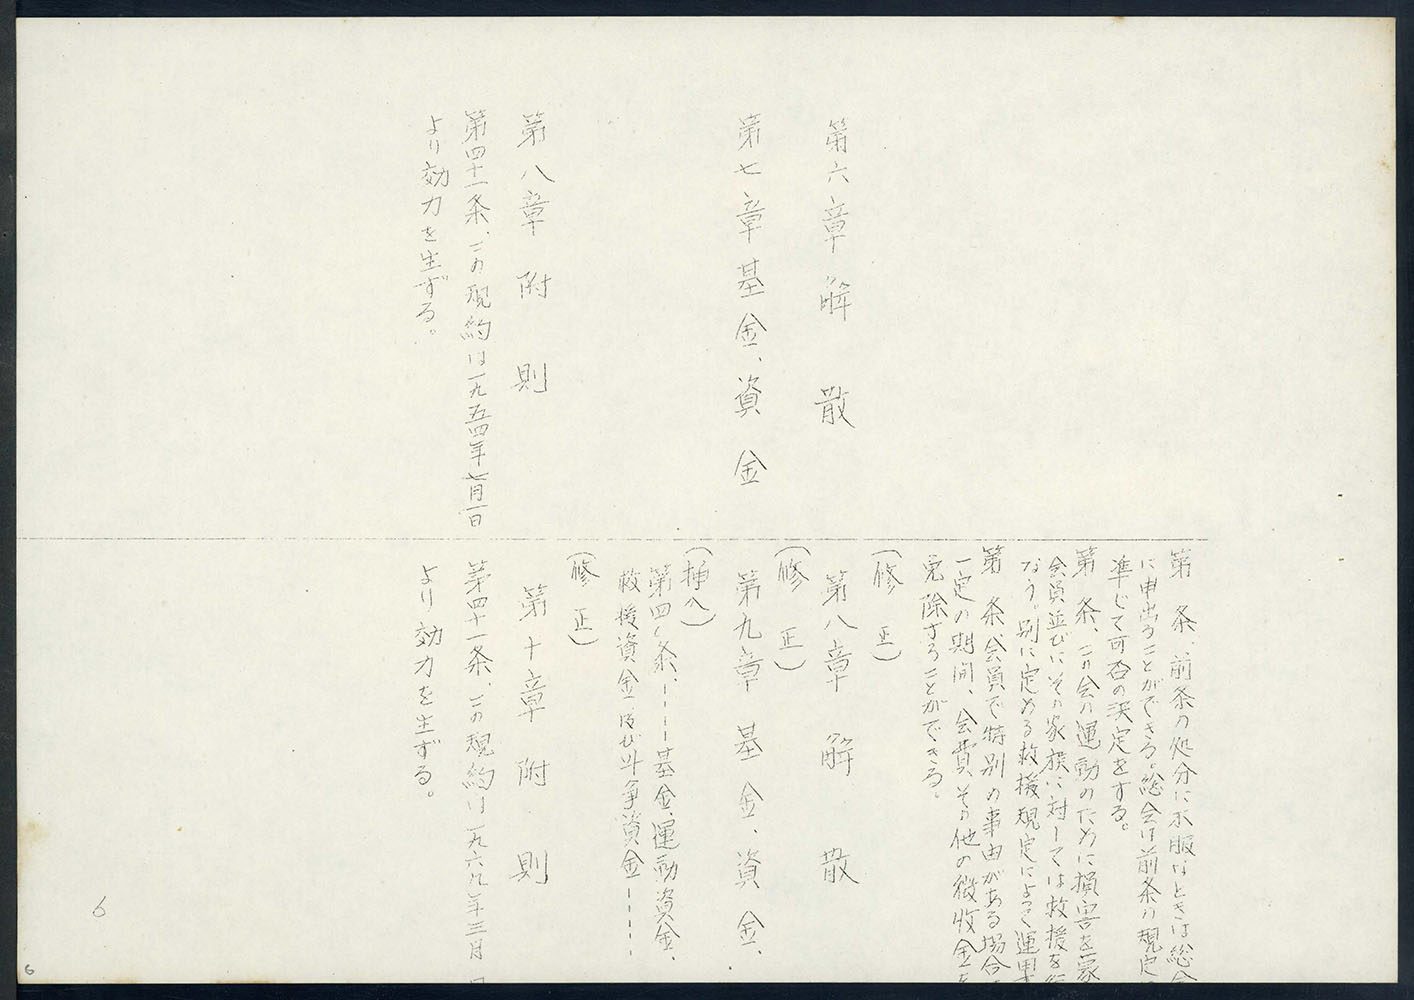 第六章 解散
第七章 基金、資金
第八章 附則
第四十一条、この規約は一九五四年七月一日
より効力を生ずる。
第 条、前条の処分に不服なときは総会
に申出ることができる。総会は前条の規定に
準じて可否の決定をする。
第 条、この会の運動のために損害を蒙
会員並びにその家族に対しては救援を行
なう。別に定める救援規定によって運用
第 条、会員で特別の事由がある場合
一定の期間、会費その他の徴収金を
免除することができる。
(修正)
第八章 解散
(修正)
第九章 基金、資金、
(挿入)
第四〇条、————基金、運動資金、
救援資金、及び斗争資金————
(修正)
第十章 附則
第四十一条、この規約は一九六九年三月 日
より効力を生ずる。
6
6